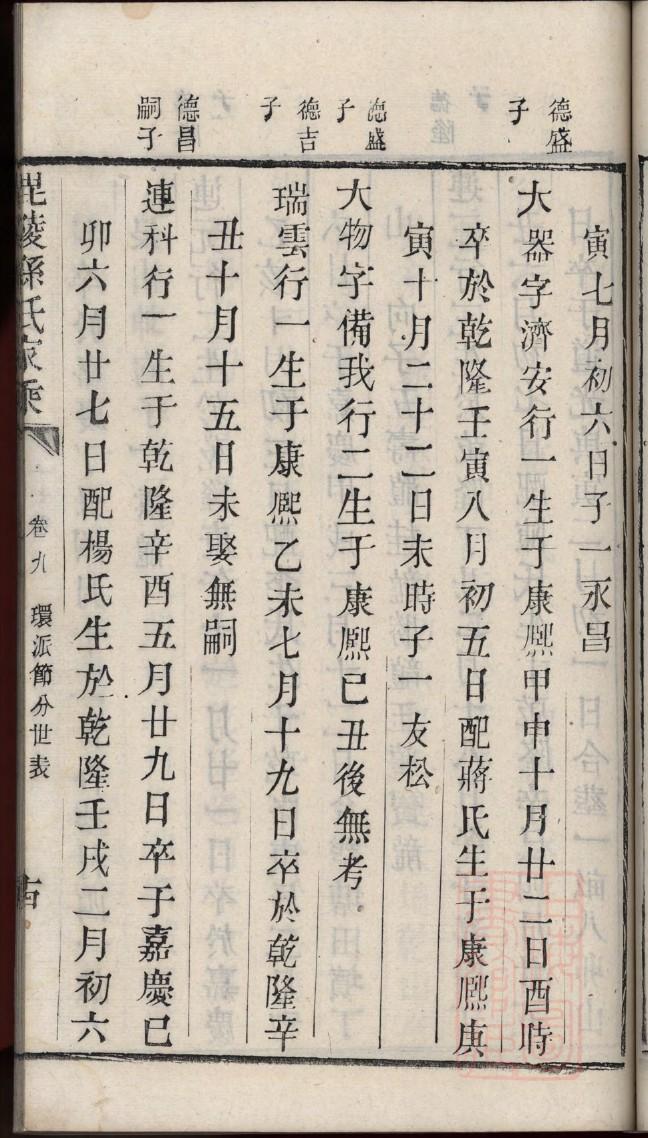 德盛
子
德盛
子
德吉
子
德昌
嗣子
寅七月初六日子一永昌
大器字濟安行一生于康熙甲申十月廿二日酉時
卒於乾隆壬寅八月初五日配蔣氏生于康熙庚
寅十月二十二日未時子一友松
大物字備我行二生于康熙己丑後無考
瑞雲行一生于康熙乙未七月十九日卒於乾隆辛
丑十月十五日未娶無嗣
連科行一生于乾隆辛酉五月廿九日卒于嘉慶己
卯六月廿七日配楊氏生於乾隆壬戌二月初六
毘陵孫氏家乘
卷九
環派節分世表